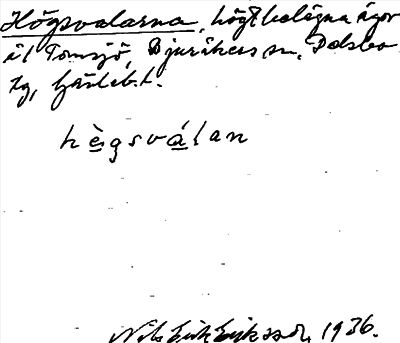 Högsvalarna, högt belägna ägor
åt Tomsjö, Bjuråkers sn, Delsbo
tg, Gävleb. l.
hègsválan
Nils Erik Eriksson, 1936.